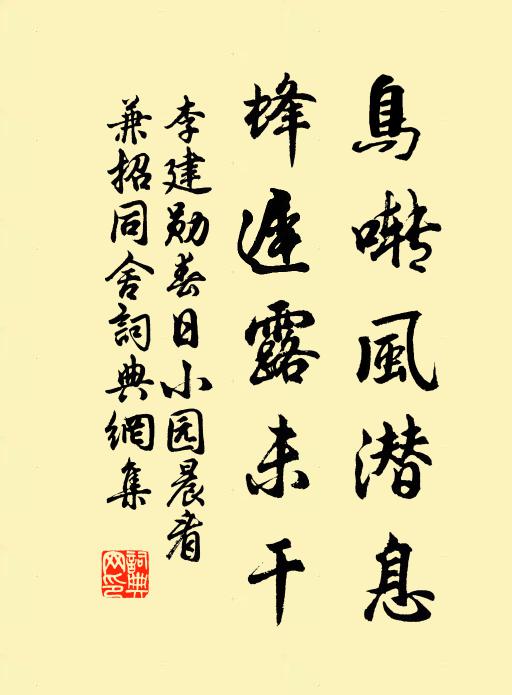 鳥啭風潜息
蜂遲露未干
李建勋春日小园晨看
兼招同舍詞典網集
詞典网印